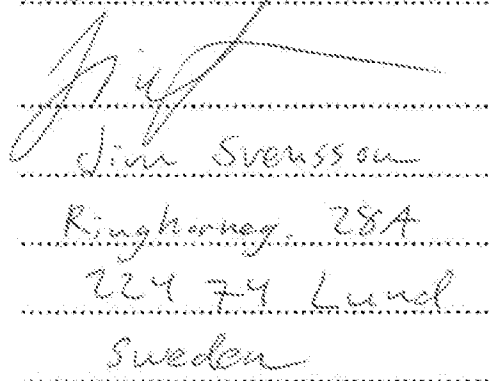 Jim Svensson
Ringhorneg. 28A
224 74 Lund
Sweden